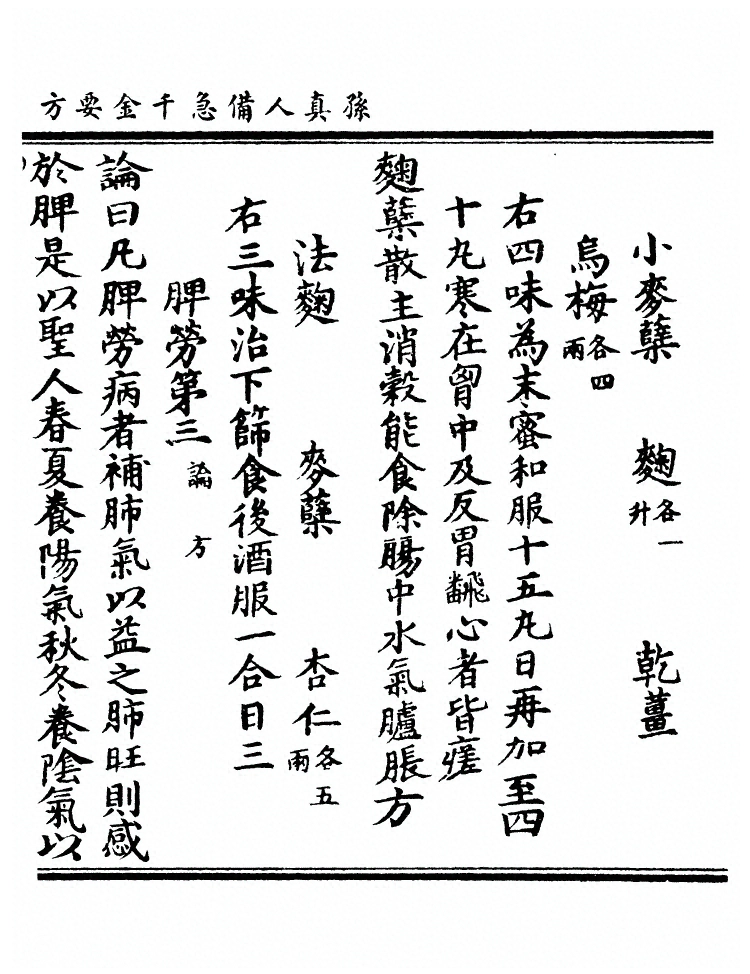 孫真人備急千金要方
小麥糵 麴各一升 乾薑
烏梅各四兩
右四味為末蜜和服十五丸日再加至四
十丸寒在胷中及反胃飜心者皆瘥
麴糵散主消穀能食除腸中水氣臚脹方
法麴 麥糵 杏仁各五兩
右三味治下篩食後酒服一合日三
脾勞第三論方
論曰凡脾勞病者補肺氣以益之肺旺則感
於脾是以聖人春夏養陽氣秋冬養陰氣以